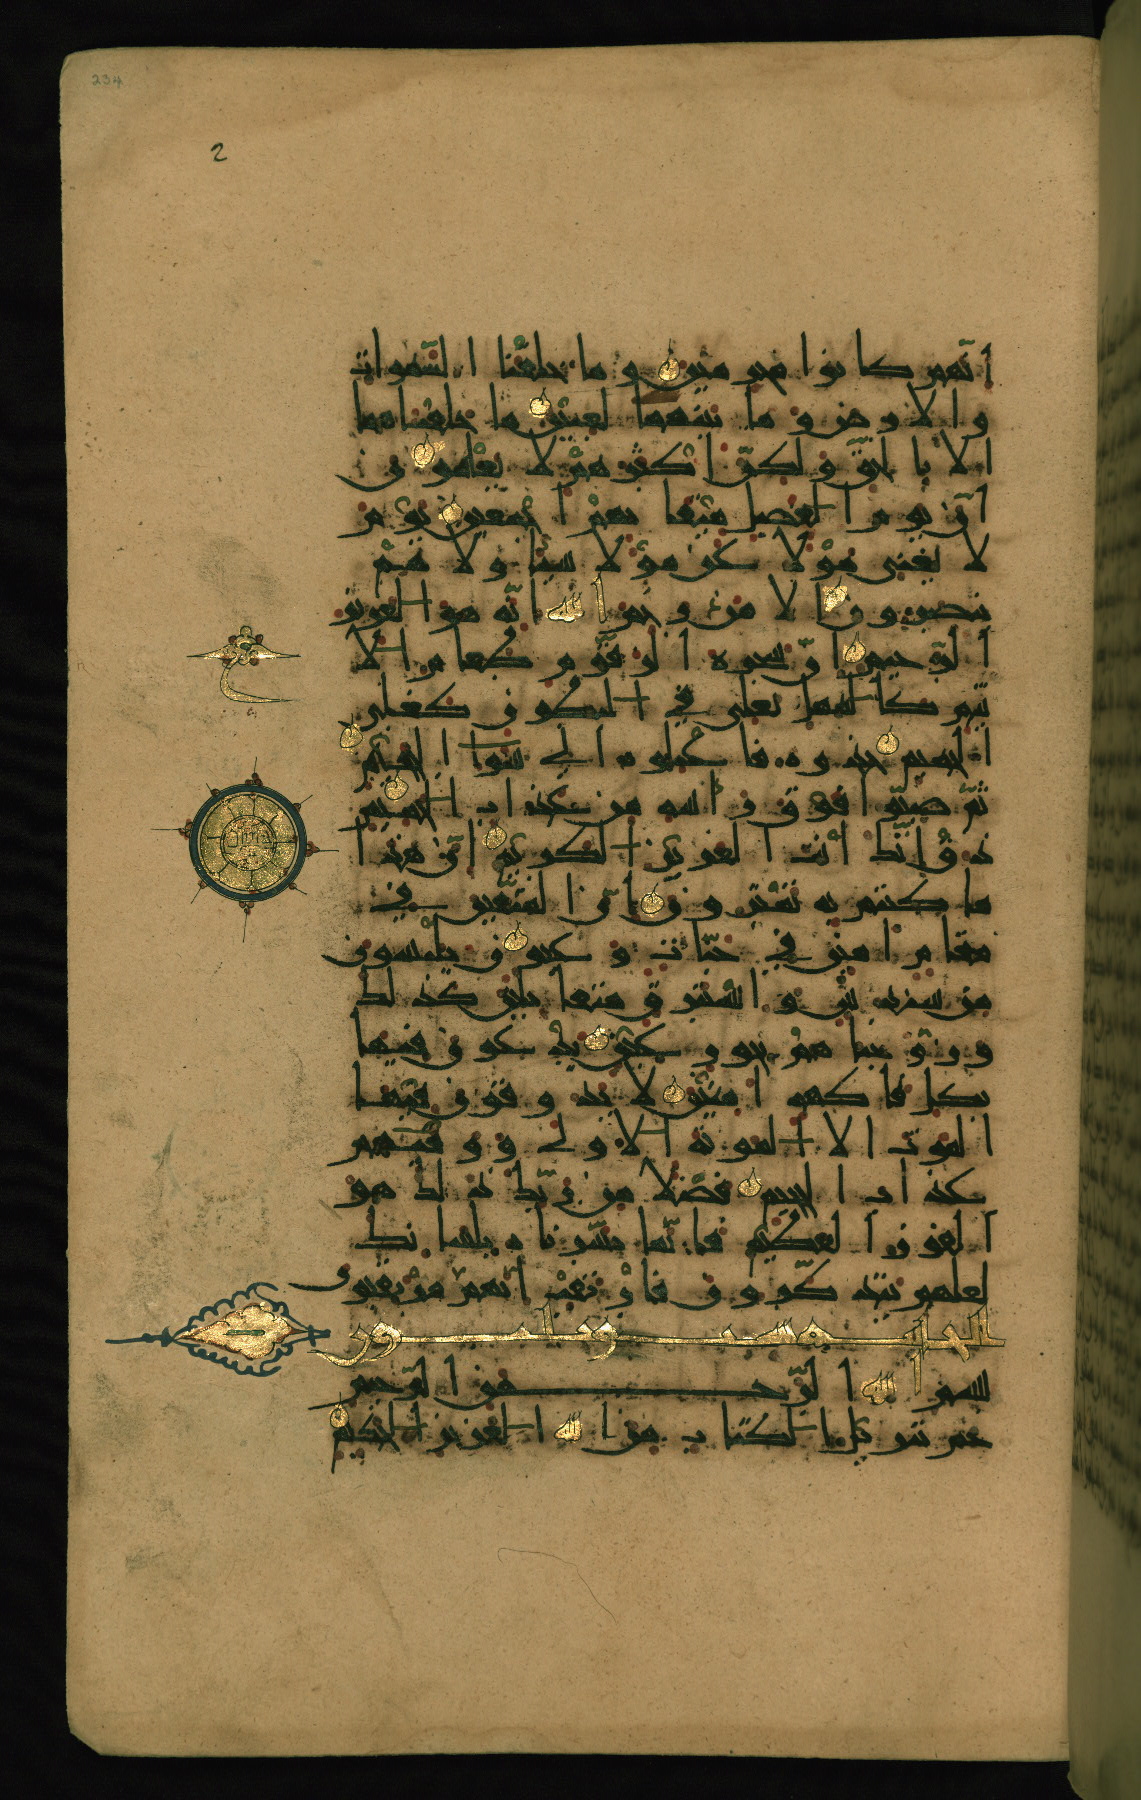 234
2
انهم كانوا مجرمين وما خلقنا السموات
والارض وما بينهما لعبين ما خلقناهما
الا بالحق ولكن اكثرهم لا يعلمون
ان يوم الفصل ميقاتهم اجمعين يوم
لا يغني مولا عن مولا شيئا ولا هم
ينصرون الا من رحم الله انه هو العزيز
الرحيم ان شجره الزقوم طعام الا
ثيم كالمهل يغلي في البطون كغلي
الحميم خذوه فاعتلوه الى سواء الجحيم
ثم صبوا فوق راسه من عذاب الحميم
ذق انك انت العزيز الكريم ان هذا
ما كنتم به تمترون ان المتقين في
مقام امين في جنات وعيون يلبسون
من سندس واستبرق متقابلين كذلك
وزوجناهم بحور عين يدعون فيها
بكل فاكهه امنين لا يذوقون فيها
الموت الا الموته الاولى ووقيهم
عذاب الجحيم فضلا من ربك ذلك هو
الفوز العظيم فانما يسرناه بلسانك
لعلهم يتذكرون فارتقب انهم مرتقبون
بسم الله الرحمن الرحيم
حم تنزيل الكتاب من الله العزيز الحكيم